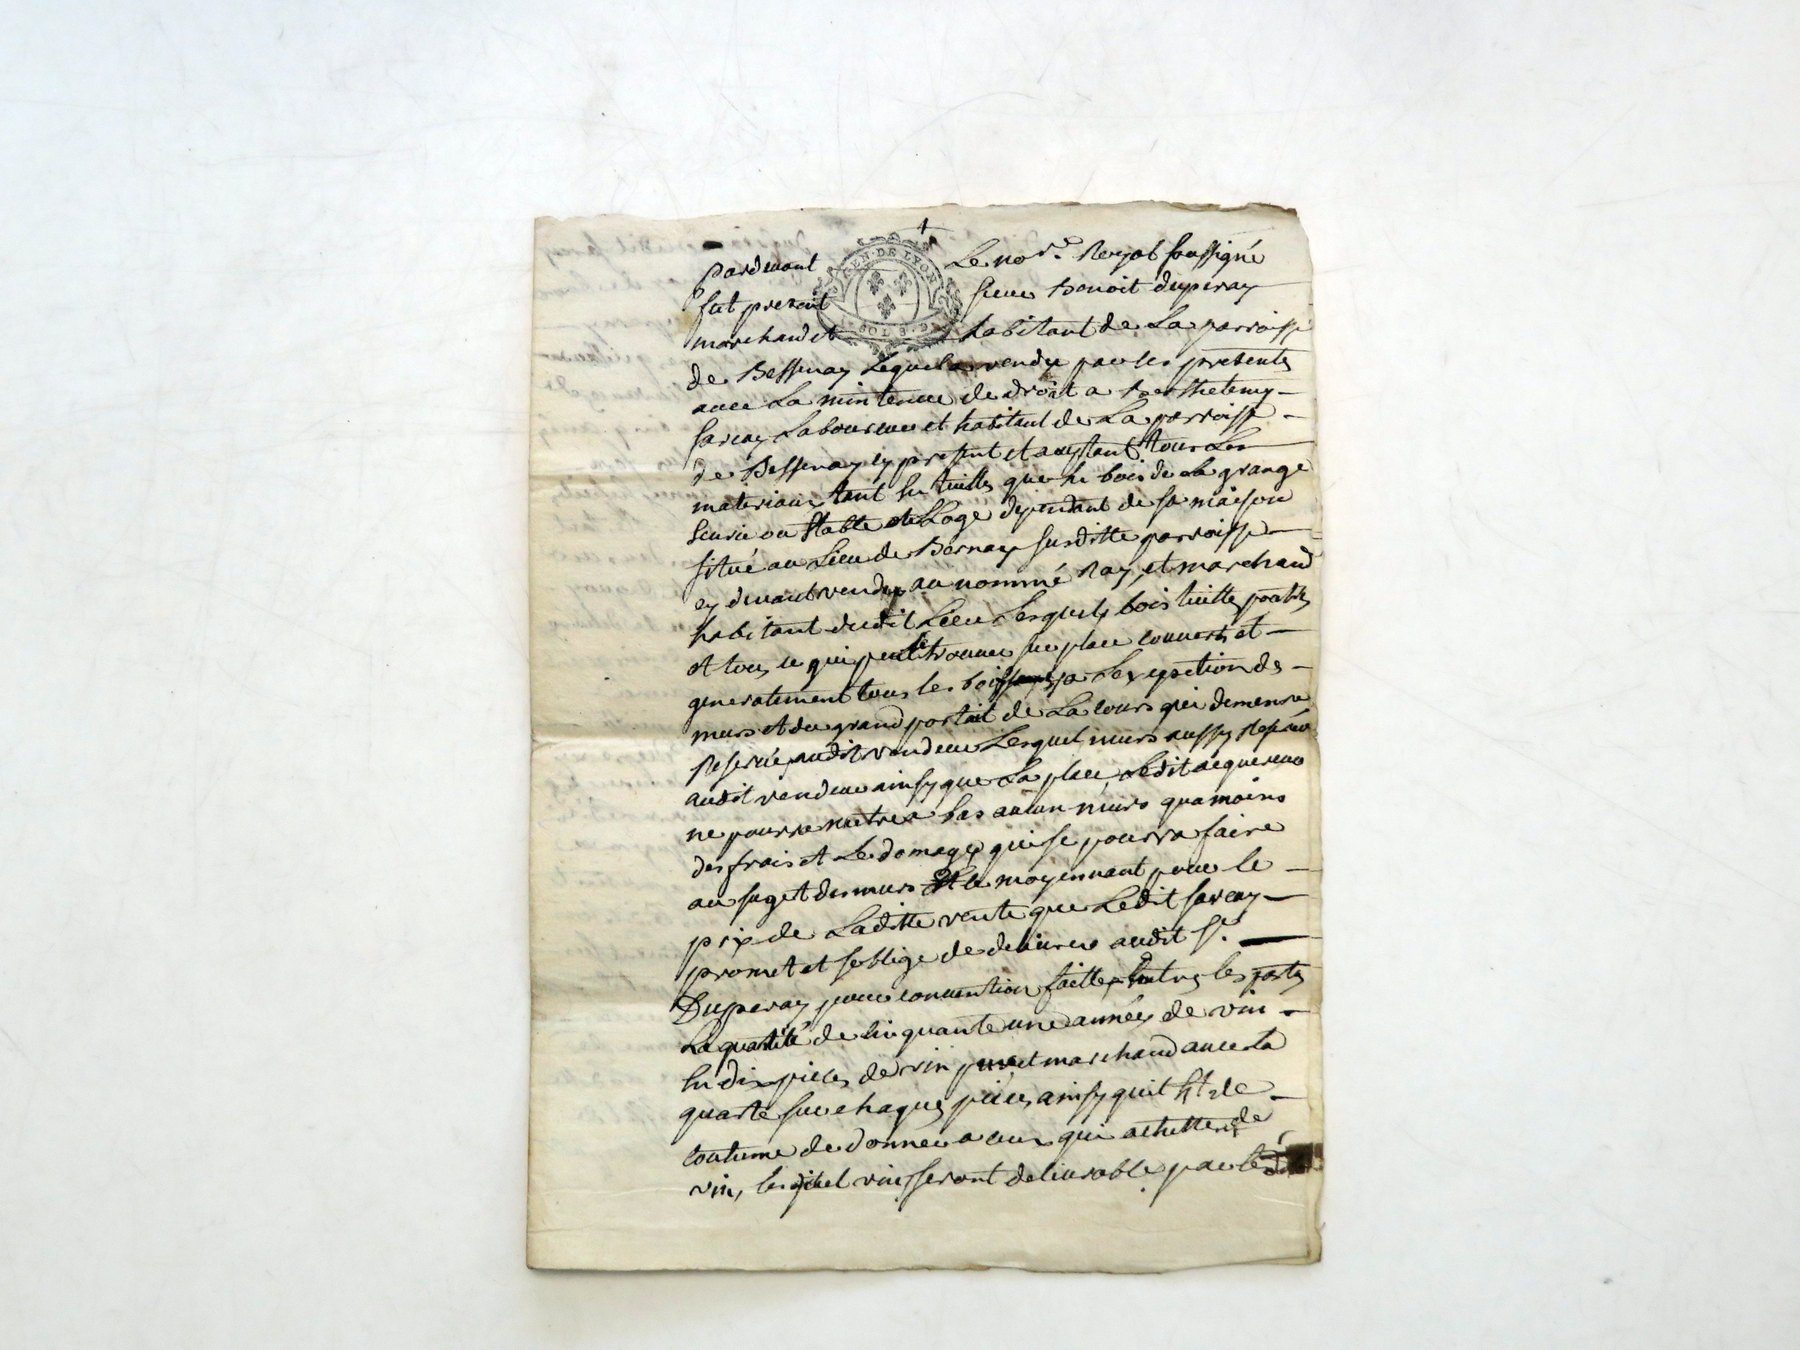 GEN · DE LYON
SOLS
pardevant Le no.re Royal soussigné
fut present sieur Benoit duperay
marchand et habitant de La parroisse
de Bessenay Lequel a vendu par les presentes
avec La mintenue de droit a Barthelemy
sarcay Laboureur et habitant de La parroisse
de Bessenay cy present et aceptant tous Les
materiaux tant les tuilles que le bois de La grange
scurie ou stable et Loge dependant de sa maison
situé au Lieu de Bernay susditte parroisse
cy devant vendu au nommé Ray, et marchand
habitant dudit Lieu Lesquels bois tuille portes
et tous ce qui peut se trouver sur place couverts et
generalement tous les bois a Lexception des
murs et du grand portail de La cours qui demeure
Reservé audit vendeur Lesquel murs aussy Reservé
audit vendeur ainsy que La place, Ledit acquereur
ne pourra mettre a bas aucun murs qua moins
des frais et Le domage qui se pourra faire
au suget des murs Et le moyennant pour le
prix de Laditte vente que Ledit sarcay
promet et soblige de delivrer audit Sr.
Duperay pour convention faitte Entre les partes
La quantité de cinquante une années de vin
les dix pieces de vin pur et marchand avec la
quarte sur chaques pieces, ainsy quil Est de
coutume de donner a ceux qui achettent de
vin, lesquel vin seront delivrable par le